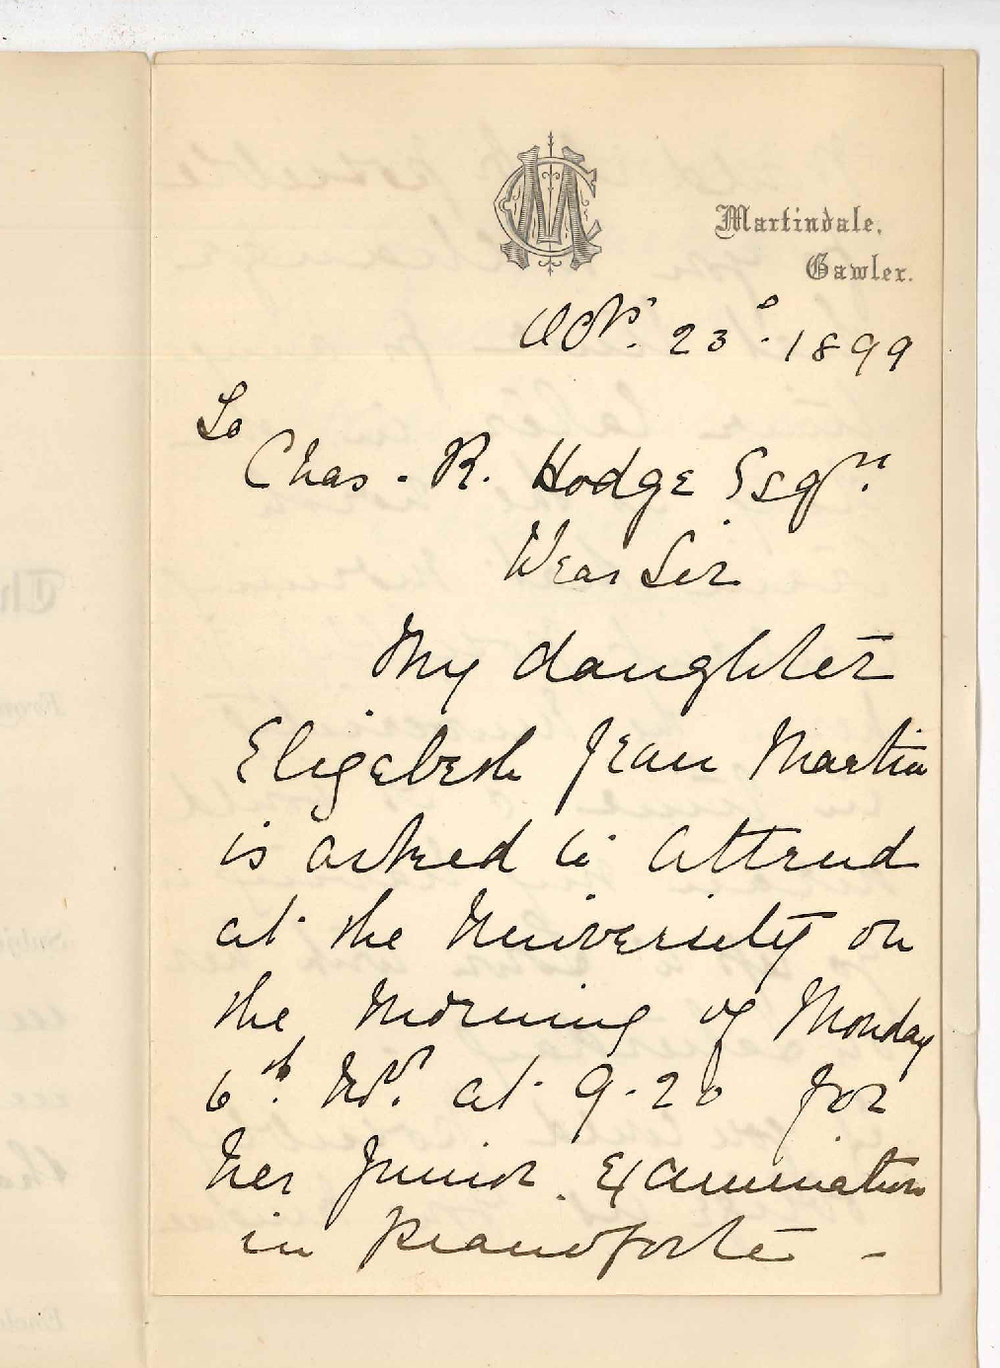 Martindale,
Gawler.
Octr. 23d. 1899
To
Chas. R. Hodge Esqre.
Dear Sir
My daughter
Elizabeth Jean Martin
is asked to attend
at the University on
the morning of Monday
6th. Novr. at 9.20 for
her Junior Examination
in Pianoforte -